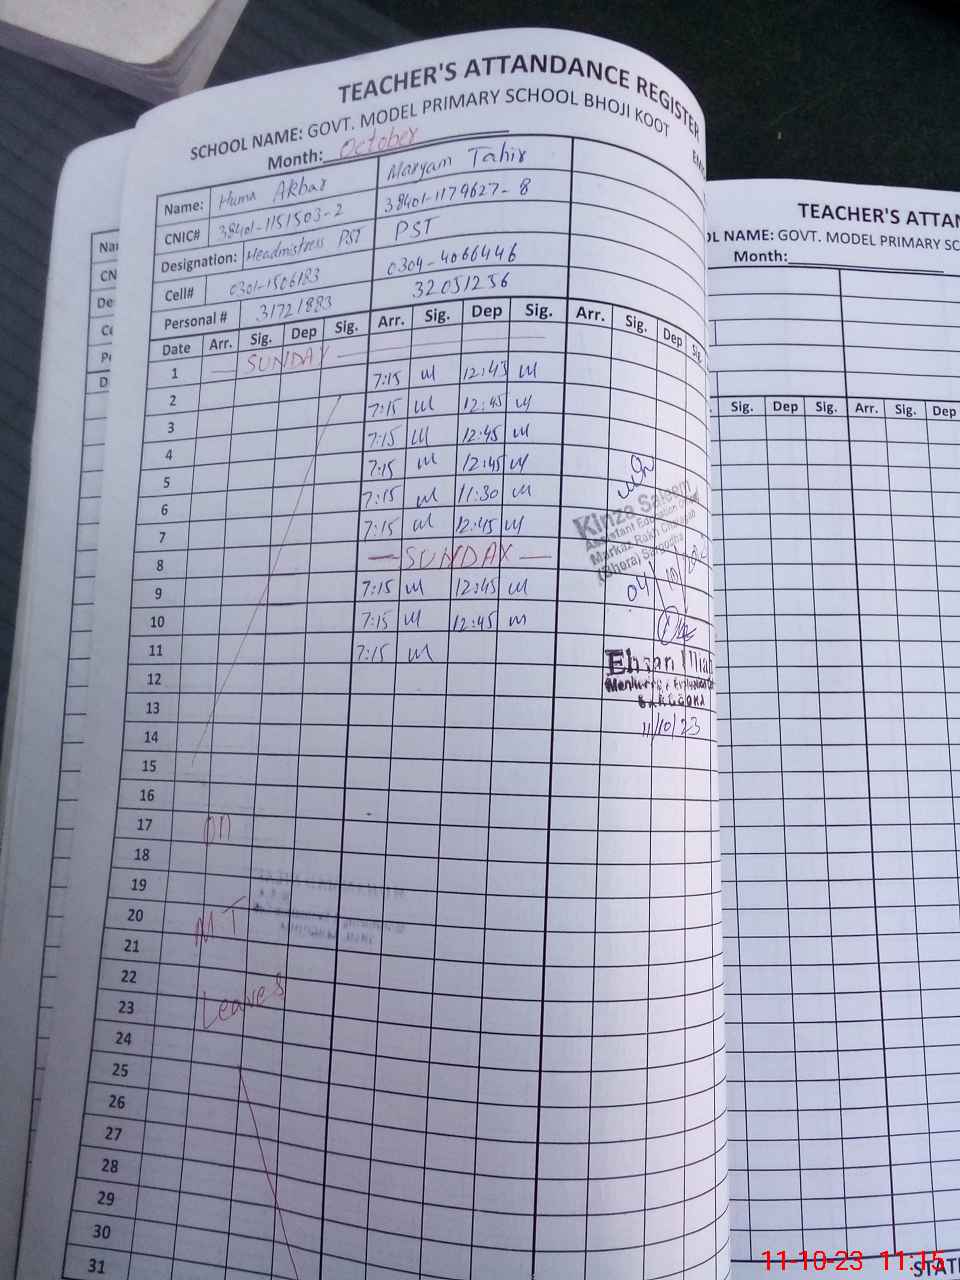 TEACHER'S ATTANDANCE REGISTER
SCHOOL NAME: GOVT. MODEL PRIMARY SCHOOL BHOJI KOOT
Month: October
Name: Huma Akbar Maryam Tahir
CNIC# 38401-1151503-2 38401-1179627-8
Designation: Headmistress PST PST
Cell# 0301-1506183 0304-4066446
Personal # 31721883 32051256
Date Arr. Sig. Dep Sig. Arr. Sig. Dep Sig. Arr. Sig. Dep Sig.
1 SUNDAY
2 7:15 12:43
3 7:15 12:45
4 7:15 12:45
5 7:15 12:45
6 7:15 11:30
7 7:15 12:45
8 SUNDAY
9 7:15 12:45
10 7:15 12:45
11 7:15
12
13
14
15
16
17 on
18
19
20
21 M T
22
23 Leaves
24
25
26
27
28
29
30
31
Kinza Saleem
Assistant Education
Markaz Rakh
(Bhera) Sargodha
04/10
Ehsan
SARGODHA
11/10/23
TEACHER'S ATTAN
OL NAME: GOVT. MODEL PRIMARY SC
Month:
Sig. Dep Sig. Arr. Sig. Dep
STAT
11-10-23 11:15